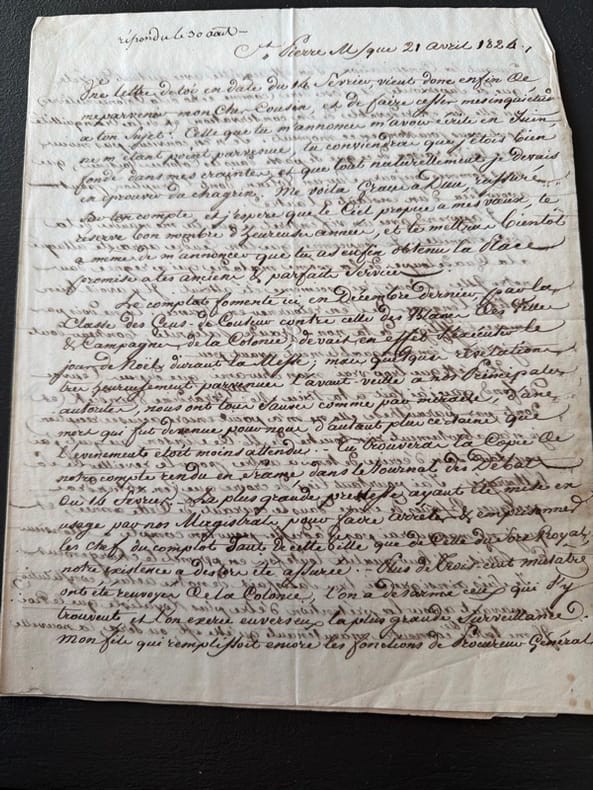 répondu le 30 août
St Pierre Mque 21 avril 1824.,
Une lettre de toi en date du 14 fevrier, vient donc enfin de
me parvenir mon cher Cousin et de faire cesser mes inquiétudes
a ton sujet. Celle que tu m'annonce m'avoir écrite en Juin
ne m'étant point parvenue, tu conviendras que j'étois bien
fondé dans mes craintes et que tout naturellement je devais
en éprouver du chagrin. Me voila Grace à Dieu rassuré
sur ton compte, et j'espere que le Ciel propice à mes vœux, te
reserve bon nombre d'heureuse année, et te mettra bientot
a meme de m'annoncer que tu as enfin obtenu la Place
promise a tes anciens & parfait service
Le complot fomenté ici, en Décembre dernier, par la
Classe des Gens de Couleur contre celle des Blancs des Ville
& Campagne de la Colonie devait en effet s'exécuter le
jour de Noël, durant la Messe, mais quelque révélation
tres heureusement parvenue l'avant-veille a nos Principales
autorités, nous ont tous sauvé comme par miracle d'une
mort qui fut devenue pour nous d'autant plus certaine que
l'évènement étoit moins attendu... Tu trouvera la Copie de
notre compte rendu en France dans le Journal des Débat
du 14 Fevrier. La plus grande prestesse ayant été mise en
usage par nos Magistrats pour faire arreter & emprisonner
les chefs du complot tant de cette ville que de celle du fort Royal,
notre existence a des lors été assurée. Plus de trois cent mulatre
ont été renvoyés de la Colonie, l'on a désarmé ceux qui s'y
trouvent et l'on exerce envers eux la plus grande Surveillance.
Mon fils qui remplissoit encore les fonctions de Procureur Général